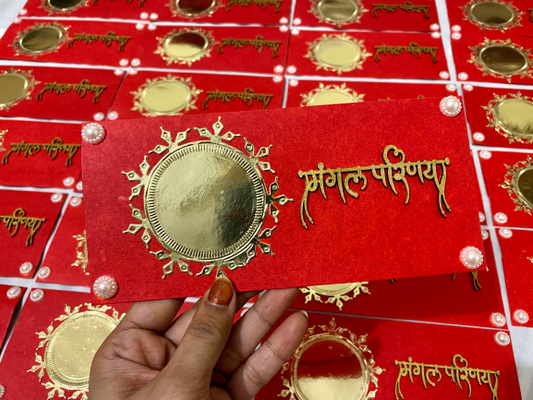 मंगल परिणय